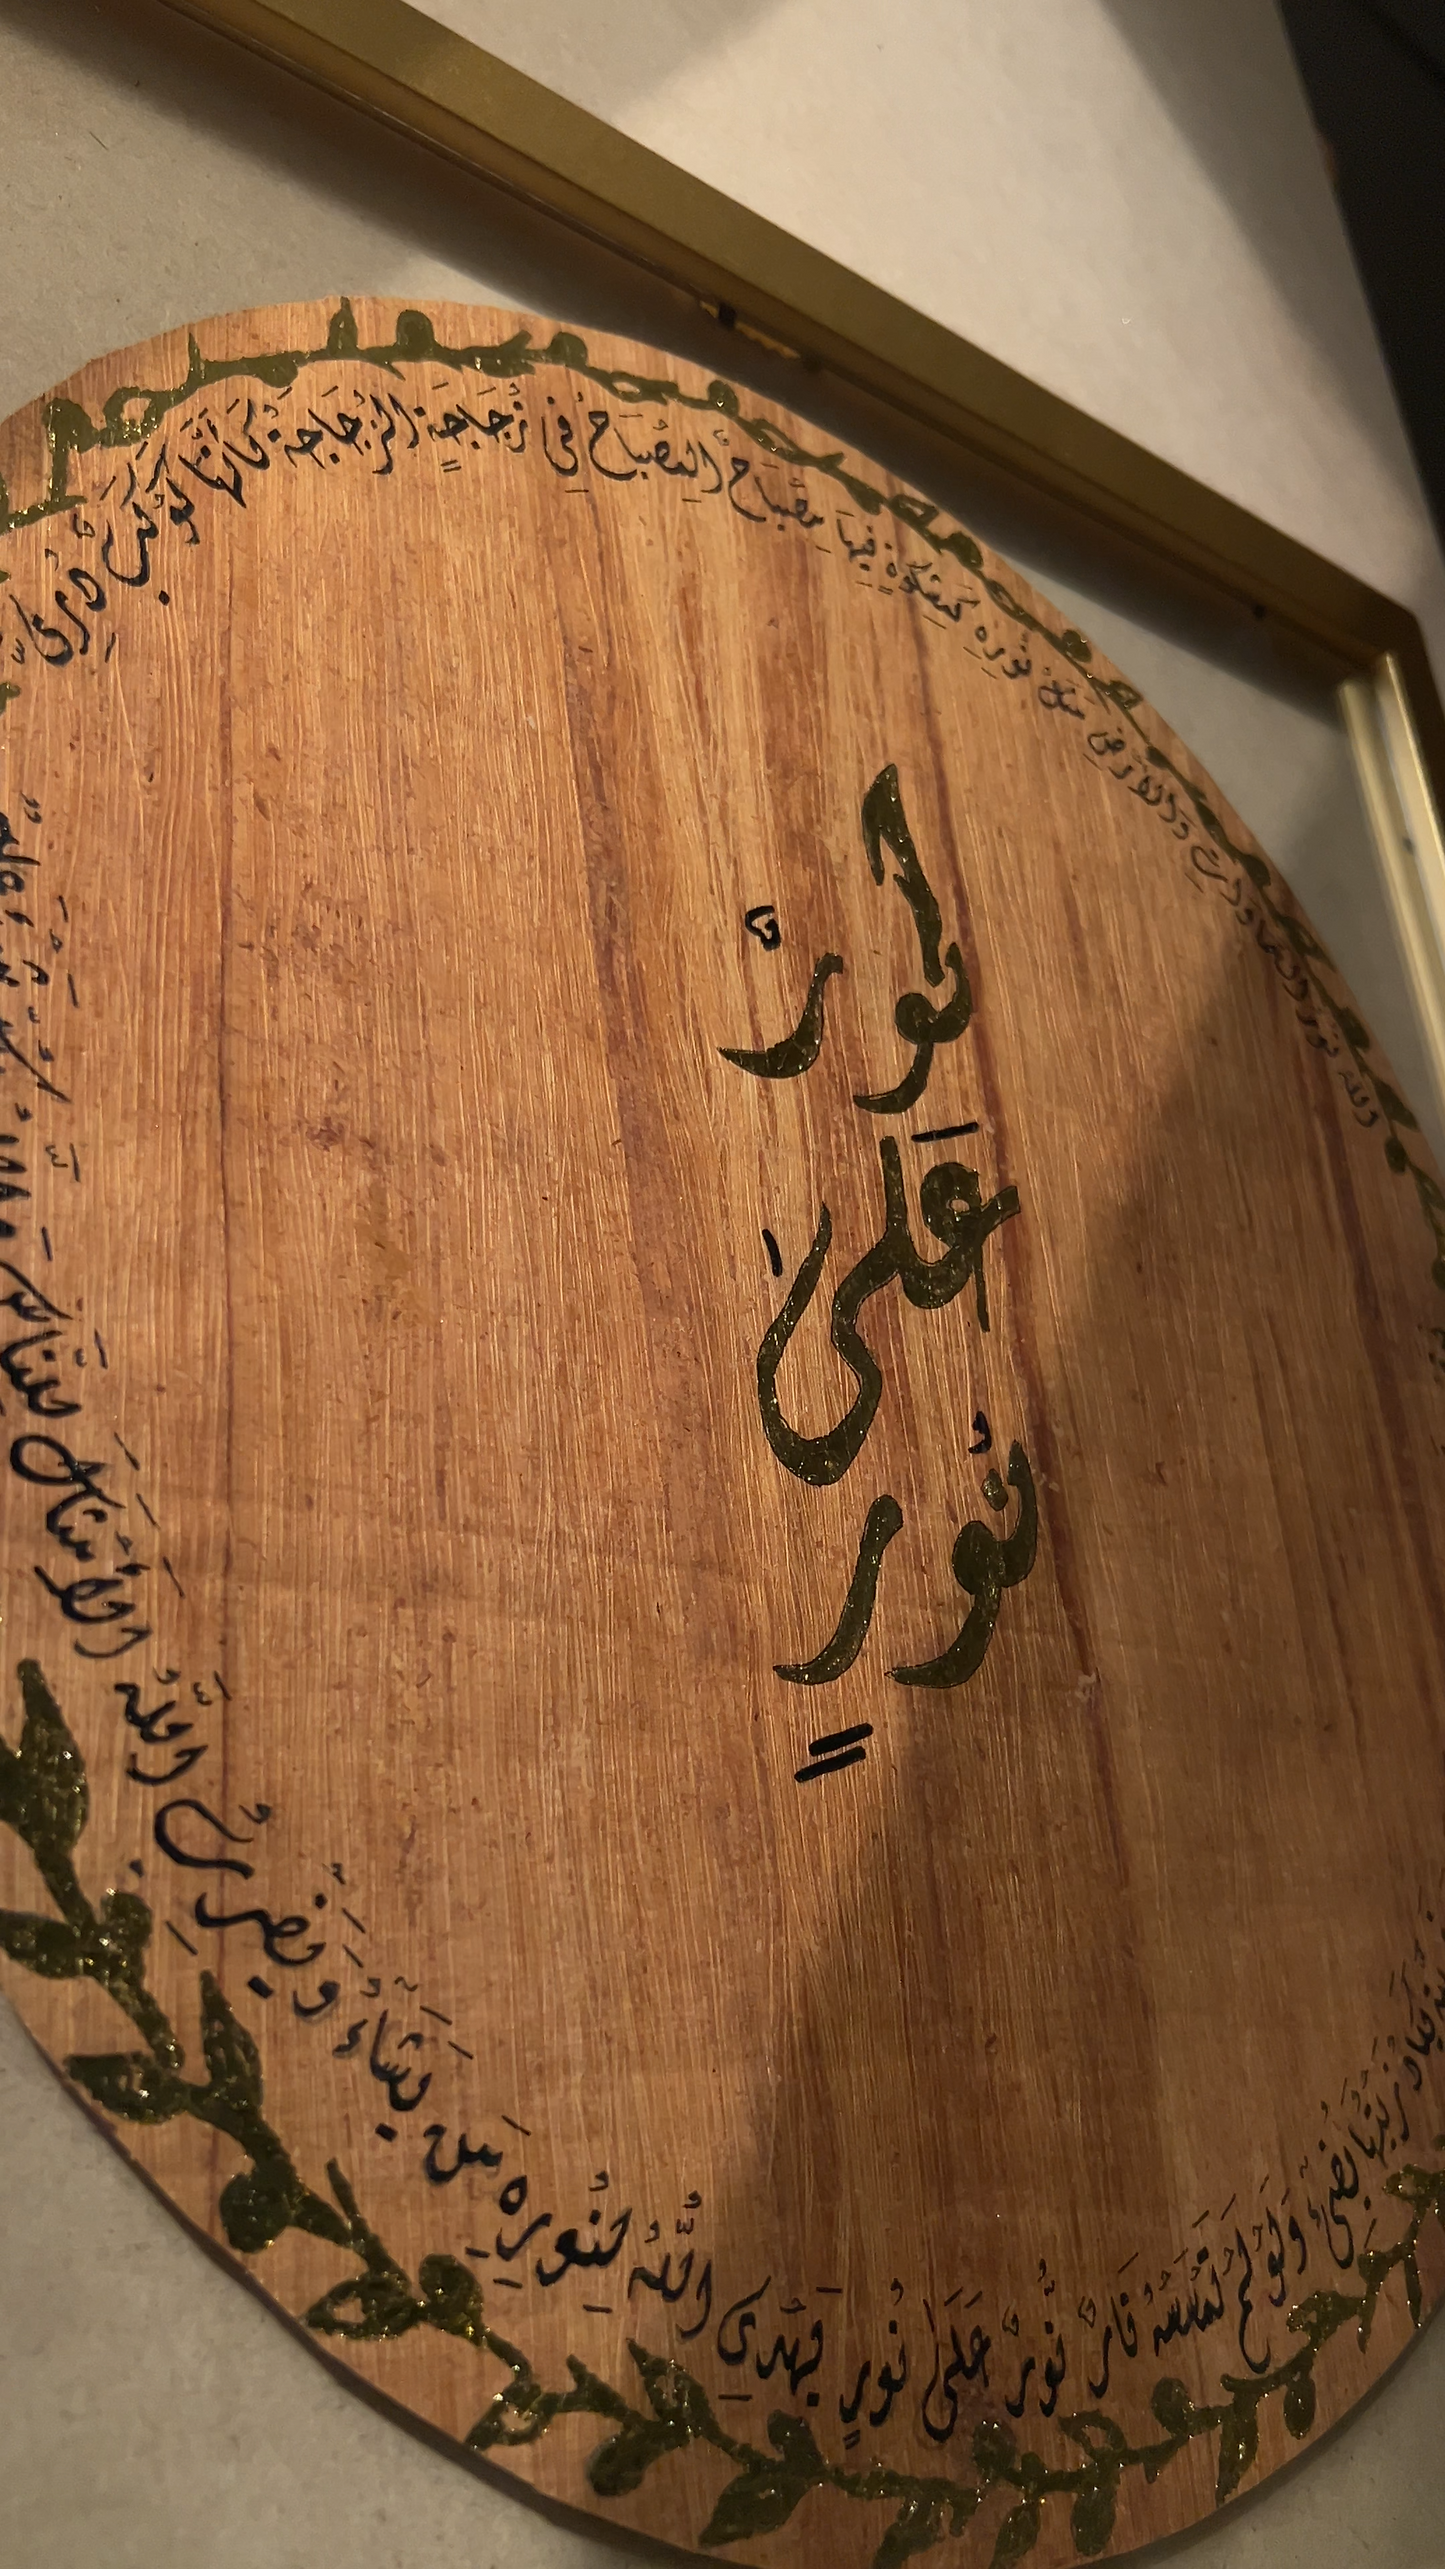 نُورٌ عَلَىٰ نُورٍ
الله نور السماوات والأرض مثل نُورِهِ كَمِشْكَوٰةٍ فِيهَا مِصْبَاحٌ الْمِصْبَاحُ فِي زُجَاجَةٍ الزُّجَاجَةُ كَأَنَّهَا كَوْكَبٌ دُرِّيٌّ
يَكَادُ زَيْتُهَا يُضِيءُ وَلَوْ لَمْ تَمْسَسْهُ نَارٌ نُّورٌ عَلَىٰ نُورٍ يَهْدِي اللَّهُ لِنُورِهِ مَن يَشَاءُ وَيَضْرِبُ اللَّهُ الْأَمْثَالَ لِلنَّاسِ وَاللَّهُ بِكُلِّ شَيْءٍ عَلِيمٌ